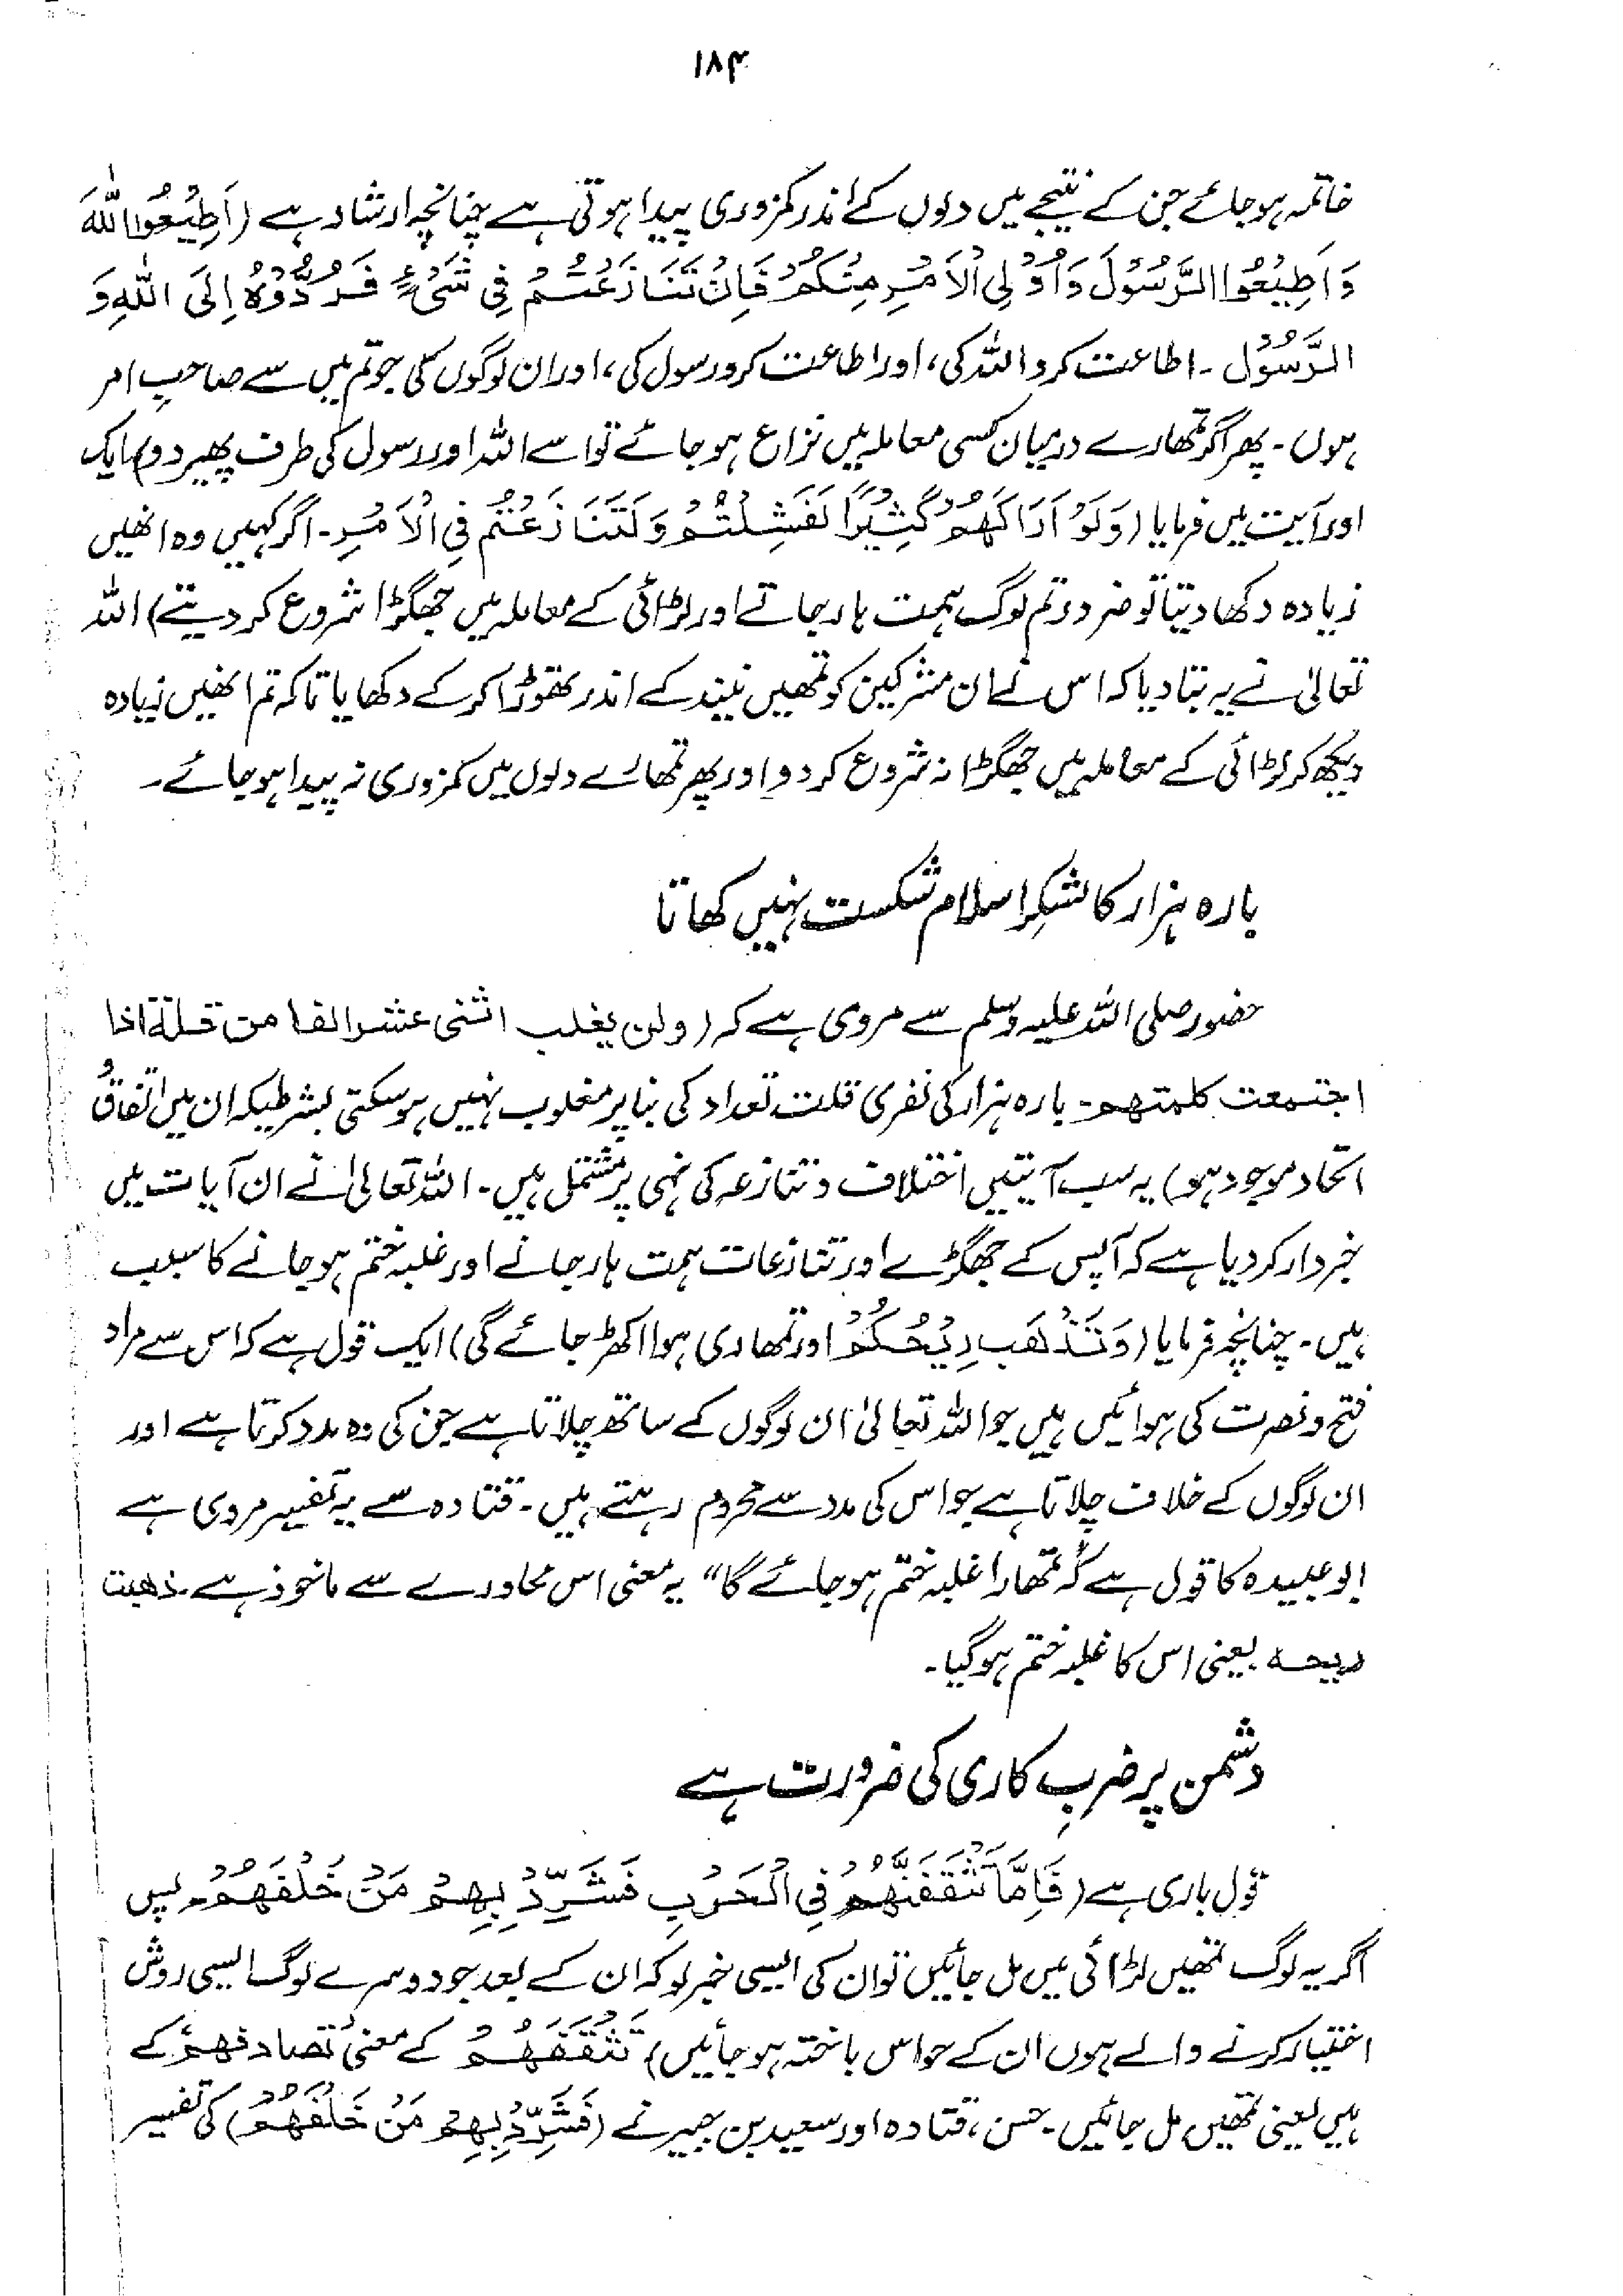 ۱۸۴
خاتمہ ہو جائے جن کے نتیجے میں دلوں کے اندر کمزوری پیدا ہوتی ہے چنانچہ ارشاد ہے (اَطِیْعُوا اللّٰہَ
وَاَطِیْعُوا الرَّسُوْلَ وَاُوْلِی الْاَمْرِ مِنْکُمْ فَاِنْ تَنَازَعْتُمْ فِیْ شَیْءٍ فَرُدُّوْہُ اِلَی اللّٰہِ وَ
الرَّسُوْلِ۔ اطاعت کرو اللہ کی، اور اطاعت کرو رسول کی، اور ان لوگوں کی جو تم میں سے صاحبِ امر
ہوں۔ پھر اگر تمھارے درمیان کسی معاملہ میں نزاع ہو جائے تو اسے اللہ اور رسول کی طرف پھیر دو) ایک
اور آیت میں فرمایا (وَلَوْ اَرَاکَھُمْ کَثِیْرًا لَفَشِلْتُمْ وَلَتَنَازَعْتُمْ فِی الْاَمْرِ۔ اگر کہیں وہ انھیں
زیادہ دکھا دیتا تو ضرور تم لوگ ہمت ہار جاتے اور لڑائی کے معاملہ میں جھگڑا شروع کر دیتے) اللہ
تعالیٰ نے یہ بتا دیا کہ اس نے ان مشرکین کو تمھیں نیند کے اندر تھوڑا کر کے دکھایا تاکہ تم انھیں زیادہ
دیکھ کر لڑائی کے معاملہ میں جھگڑا نہ شروع کر دو اور پھر تمھارے دلوں میں کمزوری نہ پیدا ہو جائے۔
بارہ ہزار کا لشکرِ اسلام شکست نہیں کھاتا
حضور صلی اللہ علیہ وسلم سے مروی ہے کہ (ولن یغلب اثنی عشر الفا من قلۃ اذا
اجتمعت کلمتھم۔ بارہ ہزار کی نفری قلت تعداد کی بنا پر مغلوب نہیں ہو سکتی بشرطیکہ ان میں اتفاق و
اتحاد موجود ہو) یہ سب آیتیں اختلاف و تنازعہ کی نہی پر مشتمل ہیں۔ اللہ تعالیٰ نے ان آیات میں
خبردار کر دیا ہے کہ آپس کے جھگڑے اور تنازعات ہمت ہار جانے اور غلبہ ختم ہو جانے کا سبب
ہیں۔ چنانچہ فرمایا (وَتَذْھَبَ رِیْحُکُمْ اور تمھاری ہوا اکھڑ جائے گی) ایک قول ہے کہ اس سے مراد
فتح و نصرت کی ہوائیں ہیں جو اللہ تعالیٰ ان لوگوں کے ساتھ چلاتا ہے جن کی وہ مدد کرتا ہے اور
ان لوگوں کے خلاف چلاتا ہے جو اس کی مدد سے محروم رہتے ہیں۔ قتادہ سے یہ تفسیر مروی ہے
ابوعبیدہ کا قول ہے کہ "تمھارا غلبہ ختم ہو جائے گا" یہ معنی اس محاورے سے ماخوذ ہے۔ ذھبت
ریحہ یعنی اس کا غلبہ ختم ہو گیا۔
دشمن پر ضربِ کاری کی ضرورت ہے
قول باری ہے (فَاِمَّا تَثْقَفَنَّھُمْ فِی الْحَرْبِ فَشَرِّدْ بِھِمْ مَنْ خَلْفَھُمْ۔ پس
اگر یہ لوگ تمھیں لڑائی میں مل جائیں تو ان کی ایسی خبر لو کہ ان کے بعد جو دوسرے لوگ ایسی روش
اختیار کرنے والے ہوں ان کے حواس باختہ ہو جائیں) تَثْقَفَھُمْ کے معنی "تصادفھم" کے
ہیں یعنی تمھیں مل جائیں۔ حسن، قتادہ اور سعید بن جبیر نے (فَشَرِّدْ بِھِمْ مَنْ خَلْفَھُمْ) کی تفسیر